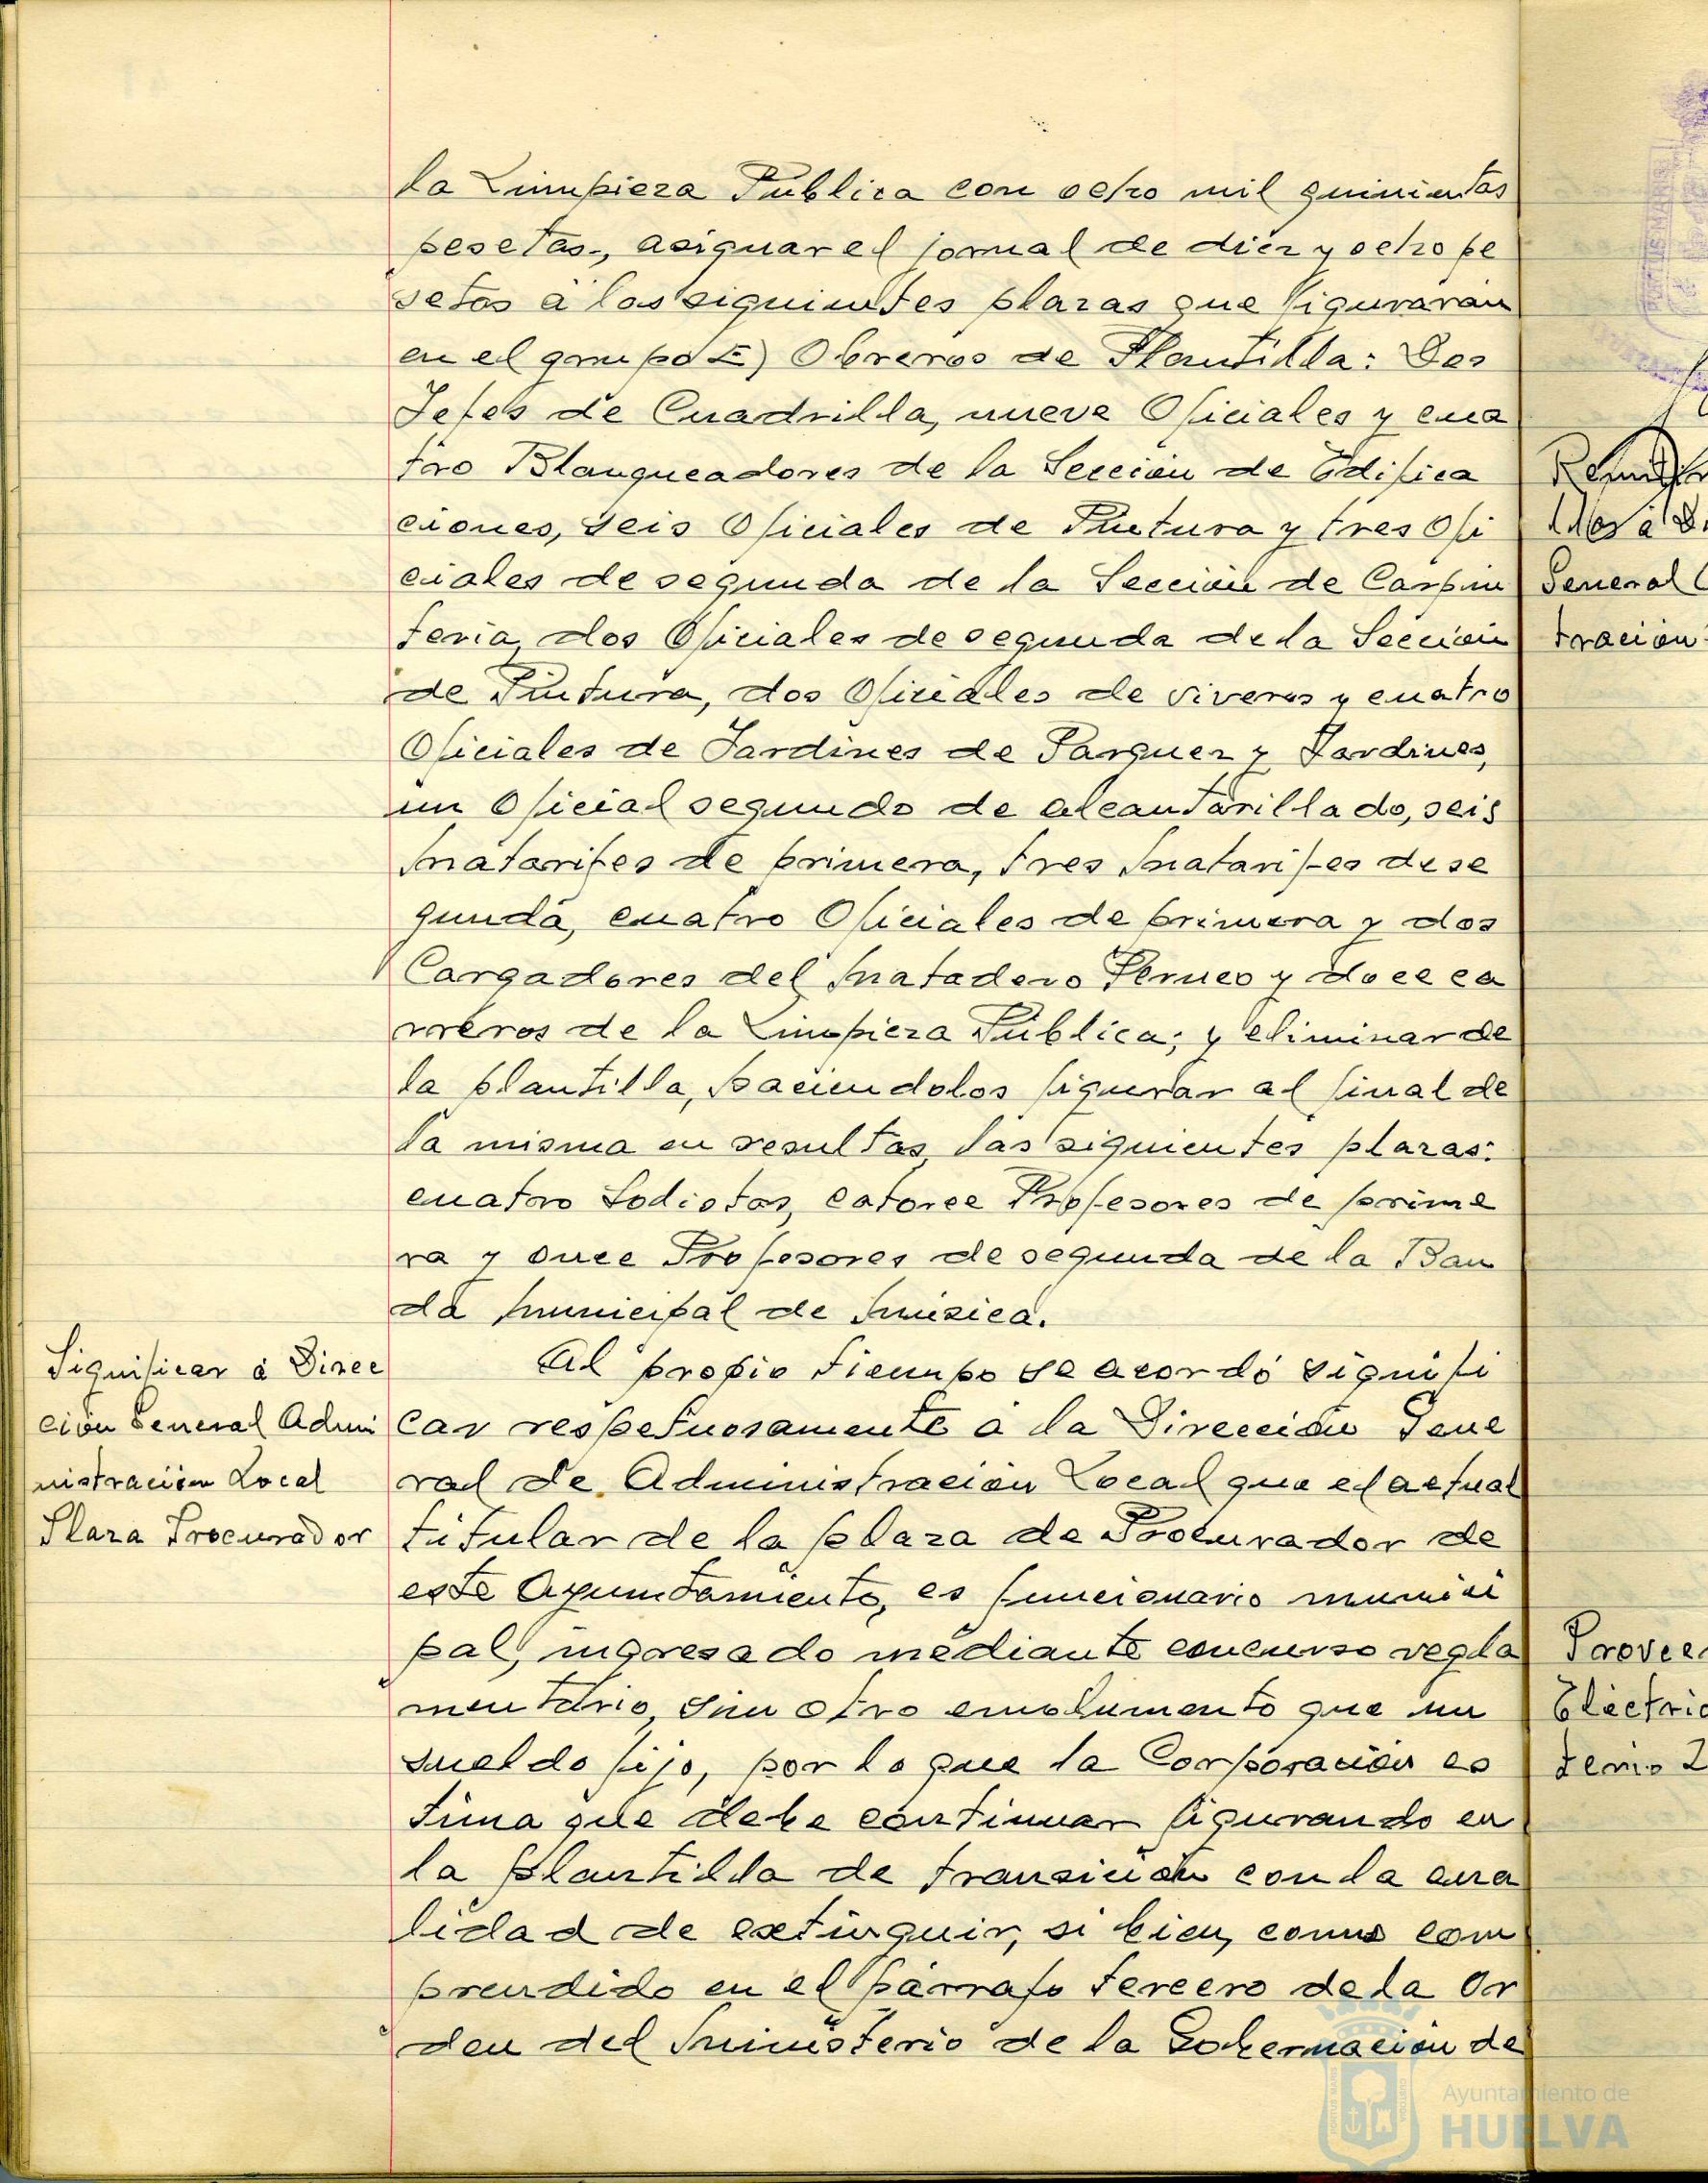 la Limpieza Pública con ocho mil quinientas
pesetas, asignar el jornal de diez y ocho pe
setas a las siguientes plazas que figurarán
en el grupo E) Obreros de Plantilla: Dos
Jefes de Cuadrilla, nueve Oficiales y cua
tro Blanqueadores de la Sección de Edifica
ciones, seis Oficiales de Pintura y tres Ofi
ciales de segunda de la Sección de Carpin
tería, dos Oficiales de segunda de la Sección
de Pintura, dos Oficiales de viveros y cuatro
Oficiales de Jardines de Parques y Jardines,
un Oficial segundo de alcantarillado, seis
Matarifes de primera, tres Matarifes de se
gunda, cuatro Oficiales de primera y dos
Cargadores del Matadero Perneo y doce ca
rreros de la Limpieza Pública; y eliminar de
la plantilla, haciendolos figurar al final de
la misma en resultas, las siguientes plazas:
cuatro Sodistas, catorce Profesores de prime
ra y once Profesores de segunda de la Ban
da Municipal de Música.
Significar á Direc
ción General Admi
nistración Local
Plaza Procurador
Al propio tiempo se acordó signifi
car respetuosamente a la Dirección Gene
ral de Administración Local que el actual
titular de la plaza de Procurador de
este Ayuntamiento, es funcionario munici
pal, ingresado mediante concurso regla
mentario, sin otro emolumento que un
sueldo fijo, por lo que la Corporación es
tima que debe continuar figurando en
la plantilla de transición con la cua
lidad de extinguir, si bien, como com
prendido en el párrafo tercero de la Or
den del Ministerio de la Gobernación de
General
tración
Provee
Electric
terio 2
Ayuntamiento de
HUELVA